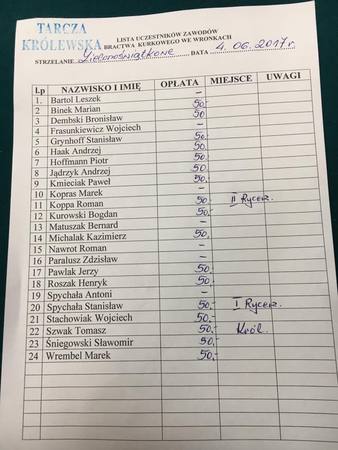 TARCZA
KRÓLEWSKA
LISTA UCZESTNIKÓW ZAWODÓW
BRACTWA KURKOWEGO WE WRONKACH
STRZELANIE Zielonoświątkowe DATA 4.06.2017r.
Lp NAZWISKO I IMIĘ OPŁATA MIEJSCE UWAGI
1. Bartol Leszek –
2 Binek Marian 50,-
3 Dembski Bronisław 50
4 Frasunkiewicz Wojciech –
5 Grynhoff Stanisław 50,-
6 Haak Andrzej 50,-
7 Hoffmann Piotr 50,-
8 Jądrzyk Andrzej 50,-
9 Kmieciak Paweł 50,-
10 Kopras Marek –
11 Koppa Roman 50,- II Rycerz.
12 Kurowski Bogdan 50,-
13 Matuszak Bernard –
14 Michalak Kazimierz 50,-
15 Nawrot Roman –
16 Paralusz Zdzisław –
17 Pawlak Jerzy 50,-
18 Roszak Henryk 50,-
19 Spychała Antoni –
20 Spychała Stanisław 50,- I Rycerz.
21 Stachowiak Wojciech 50,-
22 Szwak Tomasz 50,- Król.
23 Śniegowski Sławomir 50,-
24 Wrembel Marek 50,-